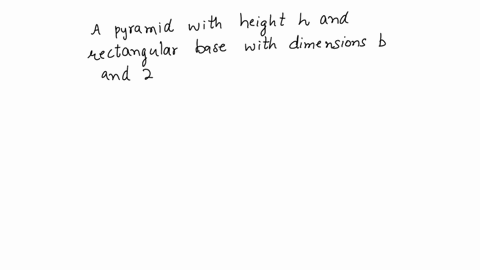 A pyramid with height h and
rectangular base with dimensions b
and 2